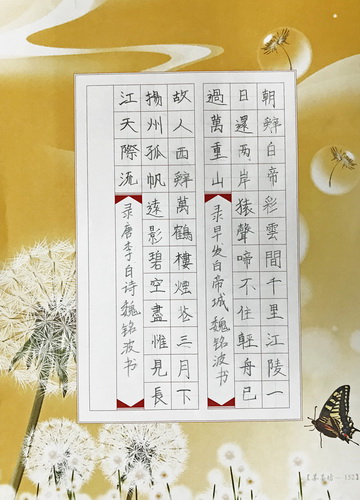 朝辤白帝彩雲間千里江陵一
日還两岸猿聲啼不住輕舟已
過萬重山
录早发白帝城魏铭波书
故人西辤黃鶴樓煙花三月下
揚州孤帆遠影碧空盡惟見長
江天際流
录唐李白诗魏铭波书